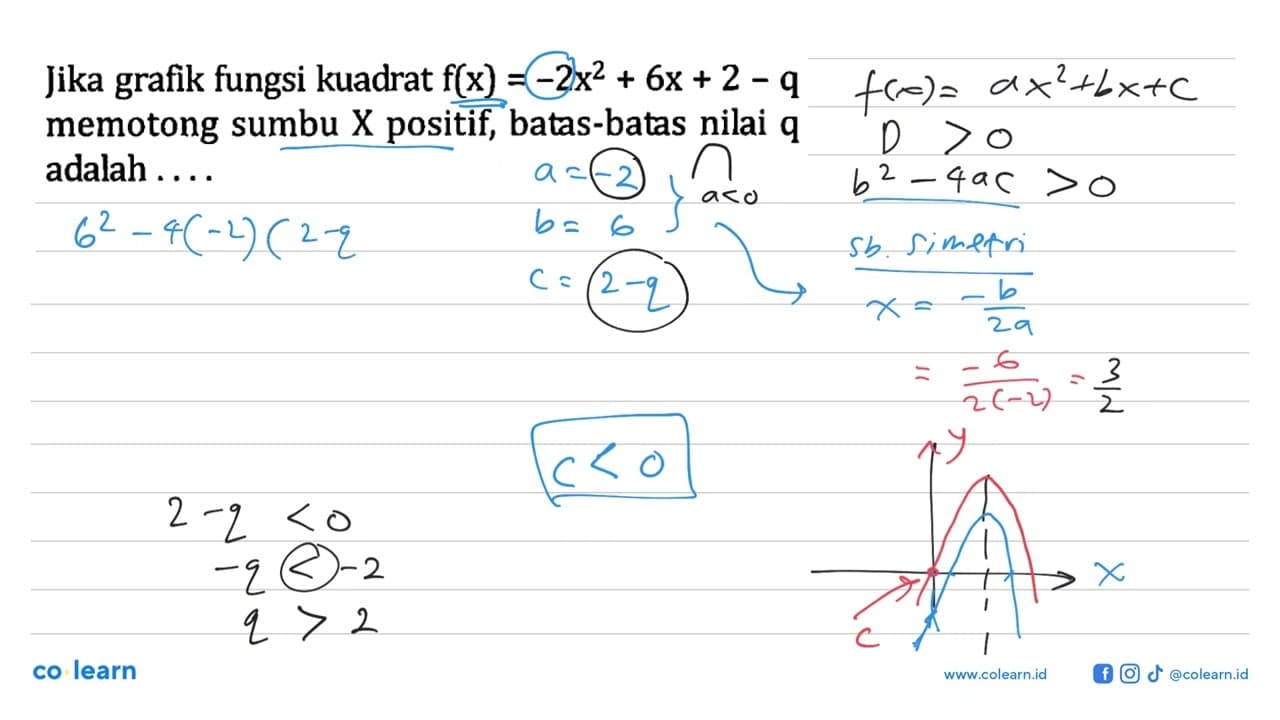 Jika grafik fungsi kuadrat f(x) = -2x² + 6x + 2 - q
memotong sumbu X positif, batas-batas nilai q
adalah ....
6² - 4(-2)(2-q
a = -2
b = 6
c = 2-q
a<0
f(x) = ax²+bx+c
D > 0
b² - 4ac > 0
sb. simetri
x = -b/2a
= -6/2(-2) = 3/2
c < 0
2-q < 0
-q < -2
q > 2
y
x
c
co learn
www.colearn.id
@colearn.id